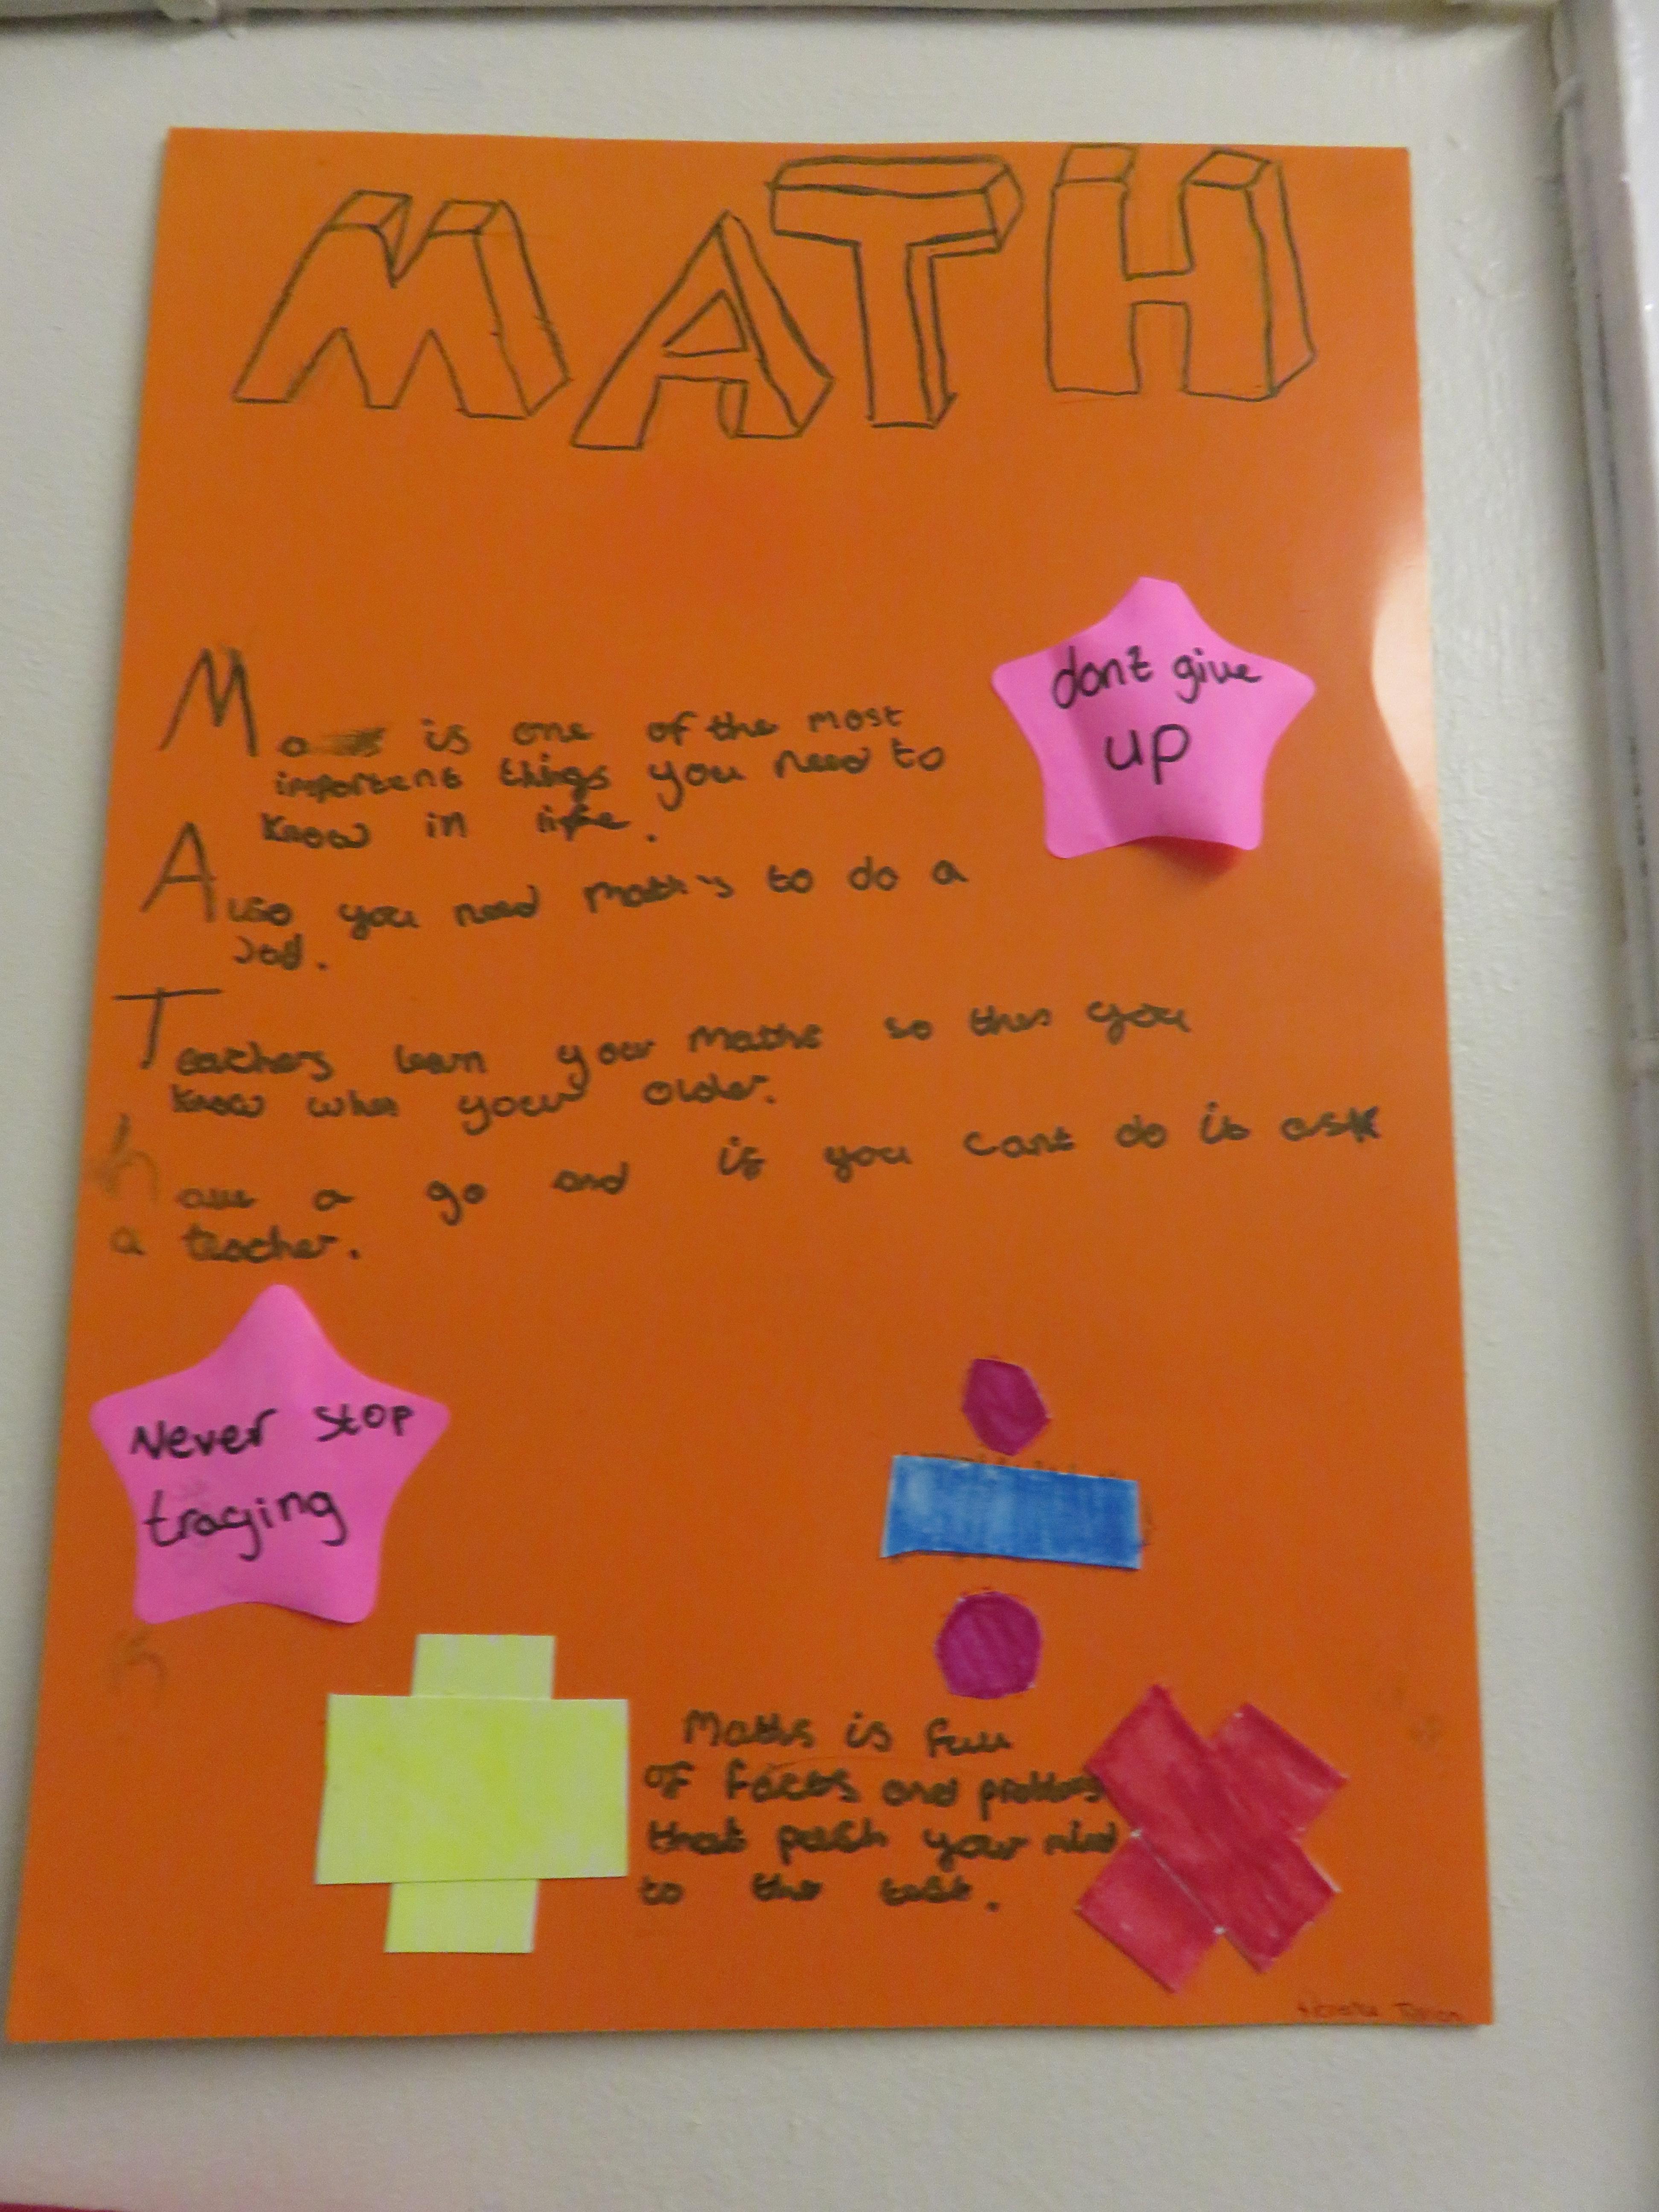 MATH
dont give
up
Ma is one of the most
importent things you need to
know in life.
Also you need math's to do a
Teachers learn your maths so then you
know when your older.
have a go and if you cant do it ask
a teacher.
Never stop
traying
Maths is full
of facts and problems
that push your mind
to the test.